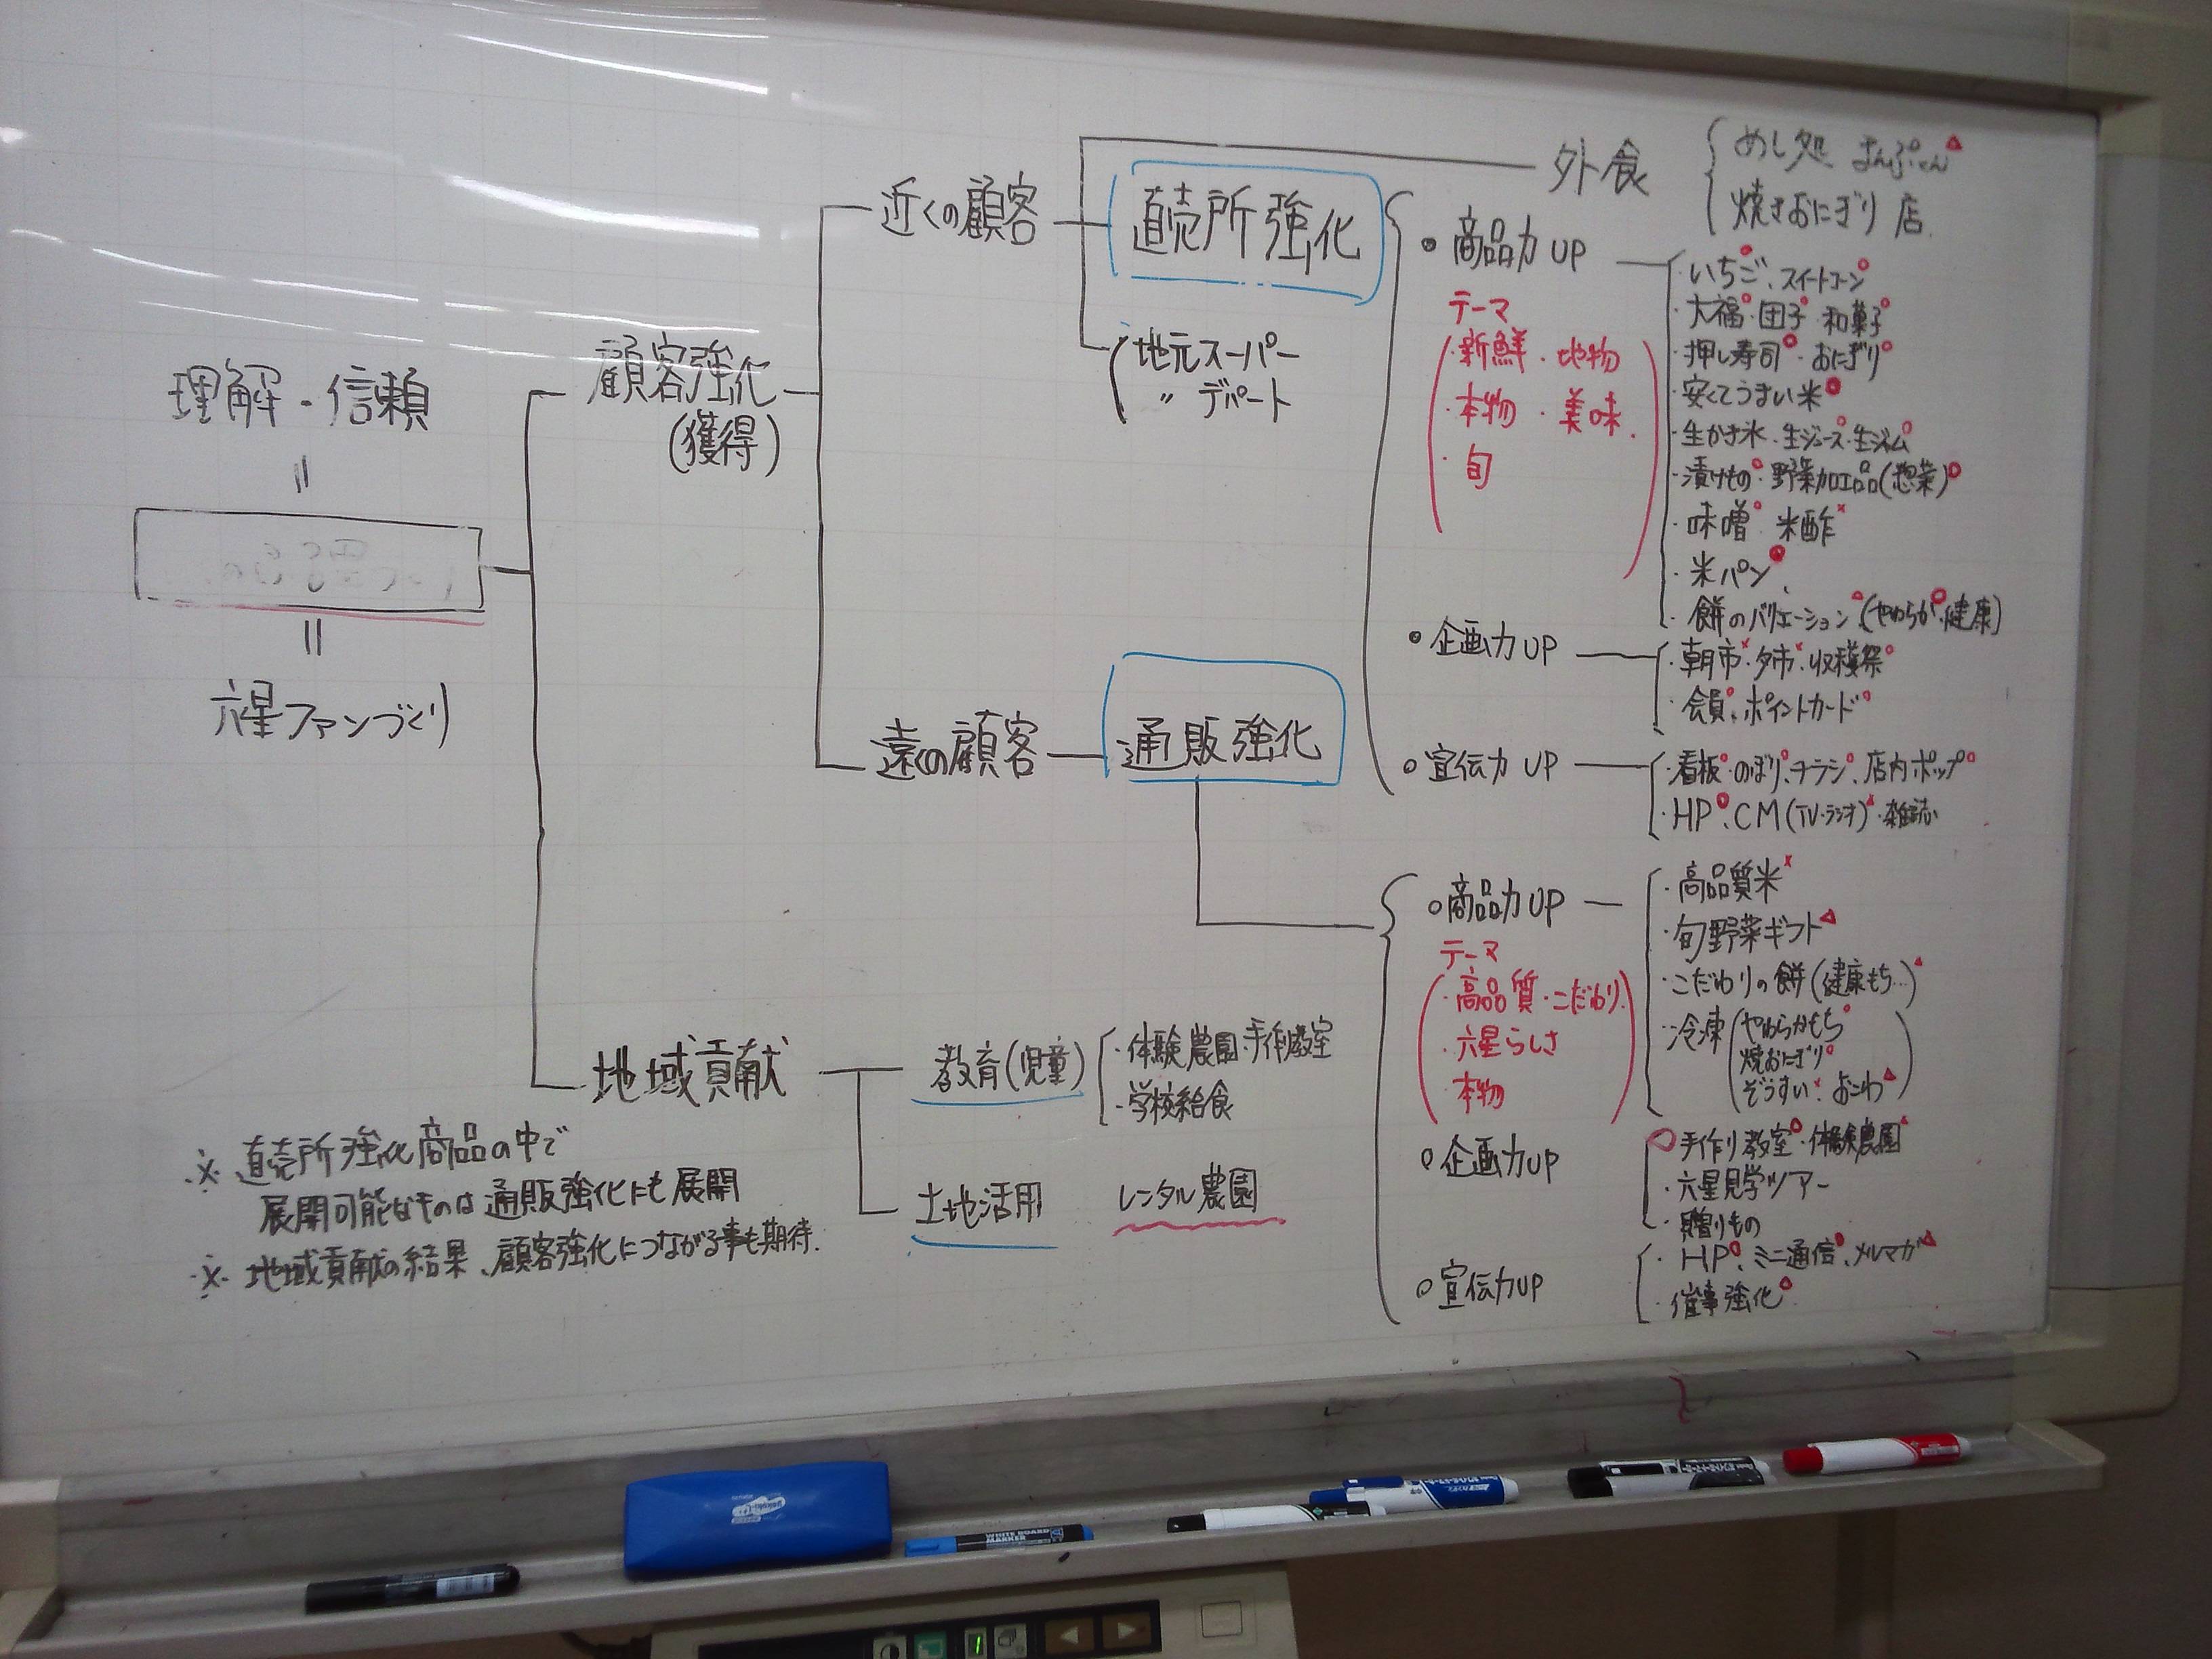 理解・信頼
=
=
六星ファンづくり
顧客強化
(獲得)
近くの顧客
直売所強化
地元スーパー
〃 デパート
外食
めし処
焼きおにぎり店
・商品力UP
テーマ
・新鮮・地物
・本物・美味
・旬
・いちご、スイートコーン
・大福・団子・和菓子
・押し寿司・おにぎり
・安くてうまい米
・生かき氷、生ジュース・生ジャム
・漬けもの・野菜加工品(惣菜)
・味噌 米酢
・米パン
・餅のバリエーション(やわらか・健康)
・企画力UP
・朝市・夕市・収穫祭
・会員、ポイントカード
○宣伝力UP
・看板・のぼり、チラシ、店内ポップ
・HP、CM(TV・ラジオ)・雑誌
遠くの顧客
通販強化
○商品力UP
テーマ
・高品質・こだわり
・六星らしさ
・本物
・高品質米
・旬野菜ギフト
・こだわりの餅(健康もち…)
・冷凍(やわらかもち
焼おにぎり
ぞうすい・おこわ)
○企画力UP
手作り教室・体験農園
・六星見学ツアー
・贈りもの
○宣伝力UP
・HP、ミニ通信、メルマガ
・催事強化
地域貢献
教育(児童)
・体験農園 手作教室
・学校給食
土地活用
レンタル農園
※直売所強化商品の中で
展開可能なものは通販強化にも展開
※地域貢献の結果、顧客強化につながる事も期待.
WHITE BOARD
MARKER